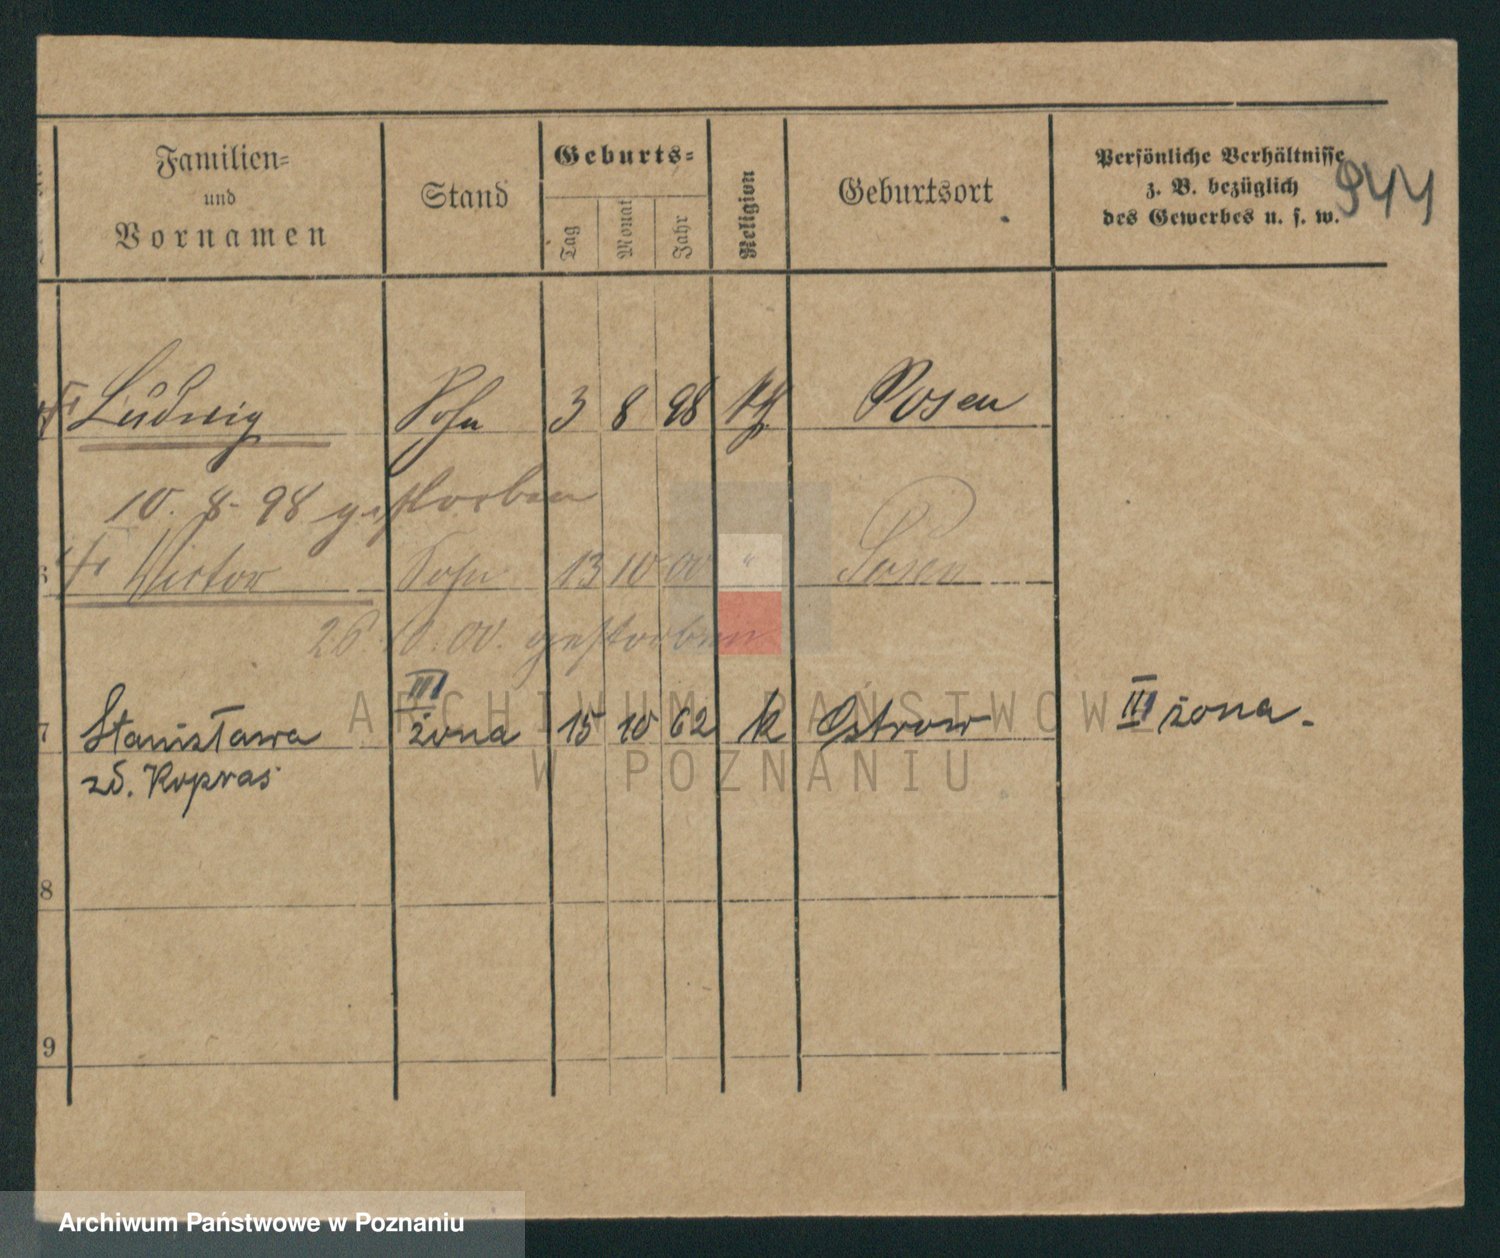 Familien=
und
Vornamen
Stand
Geburts=
Tag
Monat
Jahr
Religion
Geburtsort
Persönliche Verhältnisse
z. B. bezüglich
des Gewerbes u. s. w.
944
Ludwig Sohn 3 8 98 kth Posen
10. 8. 98 gestorben
Victor Sohn 13 10 00 " Posen
26. 10. 00. gestorben
III
7 Stanisława żona 15 10 62 k Ostrow III żona.
zd. Kopras
8
9
ARCHIWUM PAŃSTWOWE
W POZNANIU
Archiwum Państwowe w Poznaniu